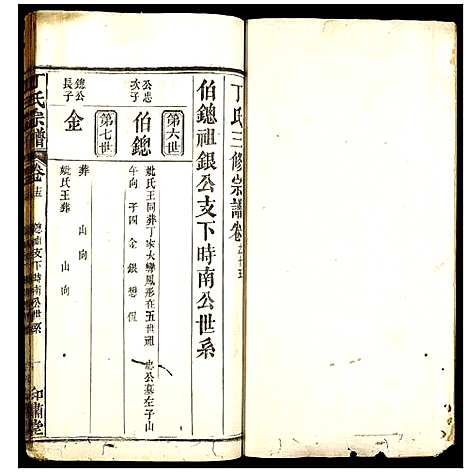 丁氏三修宗譜卷之十五
伯鏓祖銀公支下時南公世系
第六世
忠公次子
伯鏓
妣氏王同葬丁家大灣鳳形在五世祖忠公墓左子山
午向 子四 金 銀 懋 恆
第七世
鏓公長子
金
葬 山 向
妣氏王葬 山 向
丁氏宗譜
卷之十五
鏓南支下時南公世系
一